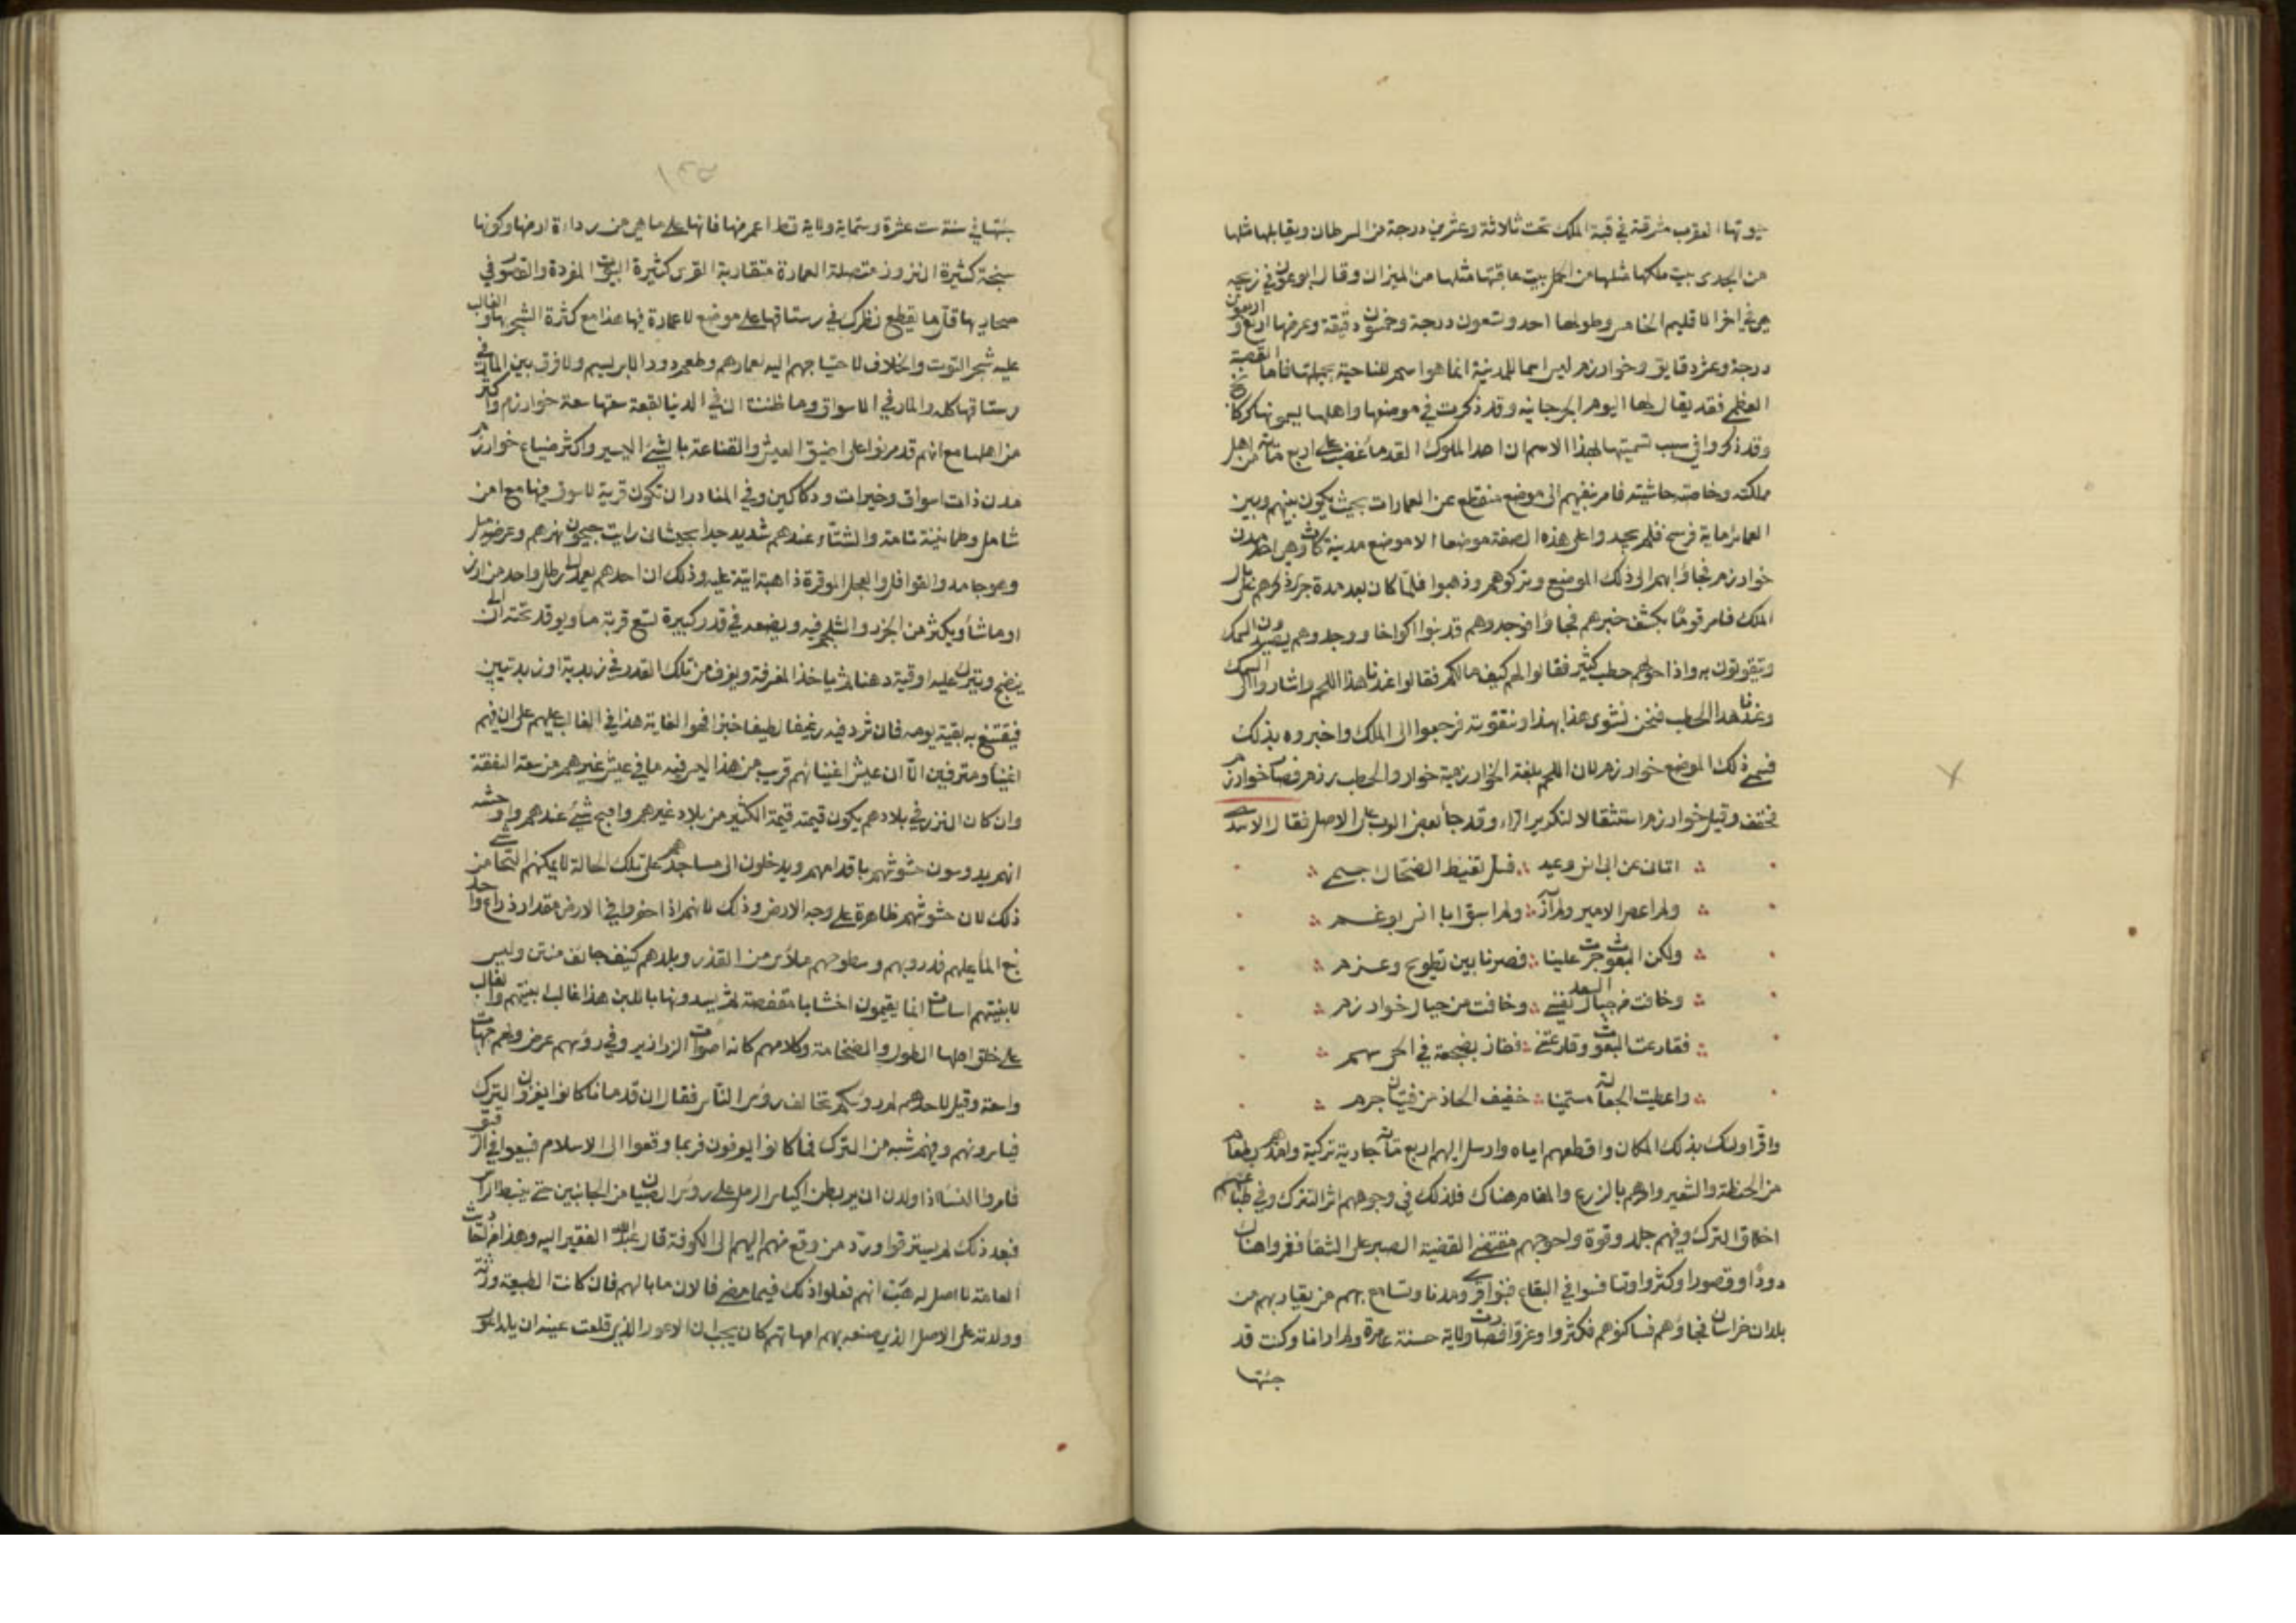 بيوتها العقرب مشرقة في قبة الملك تحت ثلاثة وعشرين درجة من السرطان ويقابلها مثلها
من الجدى بيت ملكها مثلها من الحمل بيت عاقبتها مثلها من الميزان وقال ابوعون في زيجه
هي في اخر الاقليم الخامس وطولها احد وتسعون درجة وخمسون دقيقة وعرضها اربع واربعون
درجة وعشر دقايق وخوارزم ليس اسما للمدينة انما هو اسم للناحية بجملتها فاما القصبة
العظمى فقد يقال لها اليوم الجرجانيه وقد ذكرت في موضعها واهلها يسمونها كركانج
وقد ذكروا في سبب تسميتها بهذا الاسم ان احد الملوك القدما غضب على اربع مائة من اهل
مملكته وخاصته حاشيته فامر بنفيهم الى موضع منقطع عن العمارات بحيث يكون بينهم وبين
العمائر ماية فرسخ فلم يجدوا على هذه الصفة موضعا الا موضع مدينة كاث وهي احد مدن
خوارزم فجاؤا بهم الى ذلك الموضع وتركوهم وذهبوا فلما كان بعد مدة جرى ذكرهم على بال
الملك فامر قوما بكشف خبرهم فجاؤا فوجدوهم قد بنوا اكواخا ووجدوهم يصيدون السمك
ويتقوتون به واذا حولهم حطب كثير فقالوا لهم كيف حالكم فقالوا عندنا هذا اللحم واشاروا الى السمك
وعندنا هذا الحطب فنحن نشوى هذا بهذا ونتقوت به فرجعوا الى الملك واخبروه بذلك
فسمى ذلك الموضع خوارزم لان اللحم بلغة الخوارزمية خوار والحطب رزم فصار خوارزم
فخفف وقيل خوارزم استثقالا لتكرير الراء وقد جا بعض العرب على الاصل فقال الاسدى
اتانى عن ابى انس وعيد فسل تغيظ الضحاك جسمى
ولم اعص الامير ولم اربه ولم اسبق ابا انس بوغم
ولكن البعوث جرت علينا فصرنا بين تطويح وغرم
وخافت من جبال السغد نفسى وخافت من جبال خوارزم
فقارعت البعوث وقارعتنى ففاز بضجعة في الحى سهمى
واعطيت الجعالة مستميتا خفيف الحاذ من فتيان جرم
واقر اولئك بذلك المكان واقطعهم اياه وارسل اليهم اربع مائة جارية تركية وامدهم بطعام
من الحنطة والشعير وامرهم بالزرع والمقام هناك فلذلك في وجوههم اثر الترك وفي طباعهم
اخلاق الترك وفيهم جلد وقوة واحوجهم مقتضى القضية الصبر على الشقا فعمروا هناك
دورا وقصورا وكثروا وتنافسوا في البقاع فبنوا قرى ومدنا وتسامع بهم من يقاربهم من
بلدان خراسان فجاؤهم فساكنوهم فكثروا وعزوا فصارت ولاية حسنة عامرة ولم ار وانا وكنت قد
جئتها
١٣٥
جئتها في سنة ست عشرة وستماية ولاية قط اعمر منها فانها على ما هي من رداءة ارضها وكونها
سبخة كثيرة النزوز متصلة العمارة متقاربة القرى كثيرة البيوت المفردة والقصور في
صحاريها قل ما يقطع نظرك في رستاقها على موضع لا عمارة فيها هذا مع كثرة الشجر بها والغالب
عليه شجر التوت والخلاف لاحتياجهم اليه لعمارهم وطعم دود الابريسم ولا فرق بين المار في
رستاقها كله والمار في الاسواق وما ظننت ان في الدنيا بقعة سعتها سعة خوارزم واكثر
من اهلها مع انهم قد مرنوا على ضيق العيش والقناعة بالشئ اليسير واكثر ضياع خوارزم
مدن ذات اسواق وخيرات ودكاكين وفي النادر ان تكون قرية لا سوق فيها مع امن
شامل وطمانينة تامة والشتاء عندهم شديد جدا بحيث انى رايت جيحون نهرهم وعرضه ميل
وهو جامد والقوافل والعجل الموقرة ذاهبة اتية عليه وذلك ان احدهم يعمد الى رطل واحد من ارز
او ما شاء ويكثر من الجزر والشلجم فيه ويضعه في قدر كبيرة تسع قربة ماء ويوقد تحتها الى ان
ينضج ويترك عليه اوقية دهنا ثم ياخذ المغرفة ويغرف من تلك القدر في زبدية او زبديتين
فيقتنع به بقية يومه فان ثرد فيه رغيفا لطيفا خبزا فهو الغاية هذا في الغالب عليهم على ان فيهم
اغنيا ومترفين الا ان عيش اغنيائهم قريب من هذا ليس فيه ما في عيش غيرهم من سعة النفقة
وان كان النزر في بلادهم يكون قيمته قيمة الكثير من بلاد غيرهم واقبح شئ عندهم واوحشه
انهم يدوسون حشوشهم باقدامهم ويدخلون الى مساجدهم على تلك الحالة لا يمكنهم التحاشى من
ذلك لان حشوشهم ظاهرة على وجه الارض وذلك لانهم اذا حفروا في الارض مقدار ذراع واحد
نبع الما عليهم فدروبهم وسطوحهم ملاى من القذر وبلدهم كنيف جائف منتن وليس
لابنيتهم اساسات انما يقيمون اخشابا مقفصة ثم يسدونها باللبن هذا غالب ابنيتهم والغالب
على خلق اهلها الطول والضخامة وكلامهم كانه اصوات الزرازير وفي رؤسهم عرض ولهم جبهات
واسعة وقيل لاحدهم لم رؤسكم تخالف رؤس الناس فقال ان قدمانا كانوا يغزون الترك
فياسرونهم وفيهم شبه من الترك فما كانوا يعرفون فربما وقعوا الى الاسلام فبيعوا في الرقيق
فامروا النسا اذا ولدن ان يربطن اكياس الرمل على رؤس الصبيان من الجانبين حتى ينبسط الراس
فبعد ذلك لم يسترقوا ورد من وقع منهم اليهم الى الكوفة قال عبد الله الفقير اليه وهذا من خرافات
العامة لا اصل له هب انهم فعلوا ذلك فيما مضى فالان ما بالهم فان كانت الطبيعة ورثته
وولدته على الاصل الذي صنعه بهم امهاتهم كان يجب ان الاعور الذي قلعت عينه ان يلد اعور